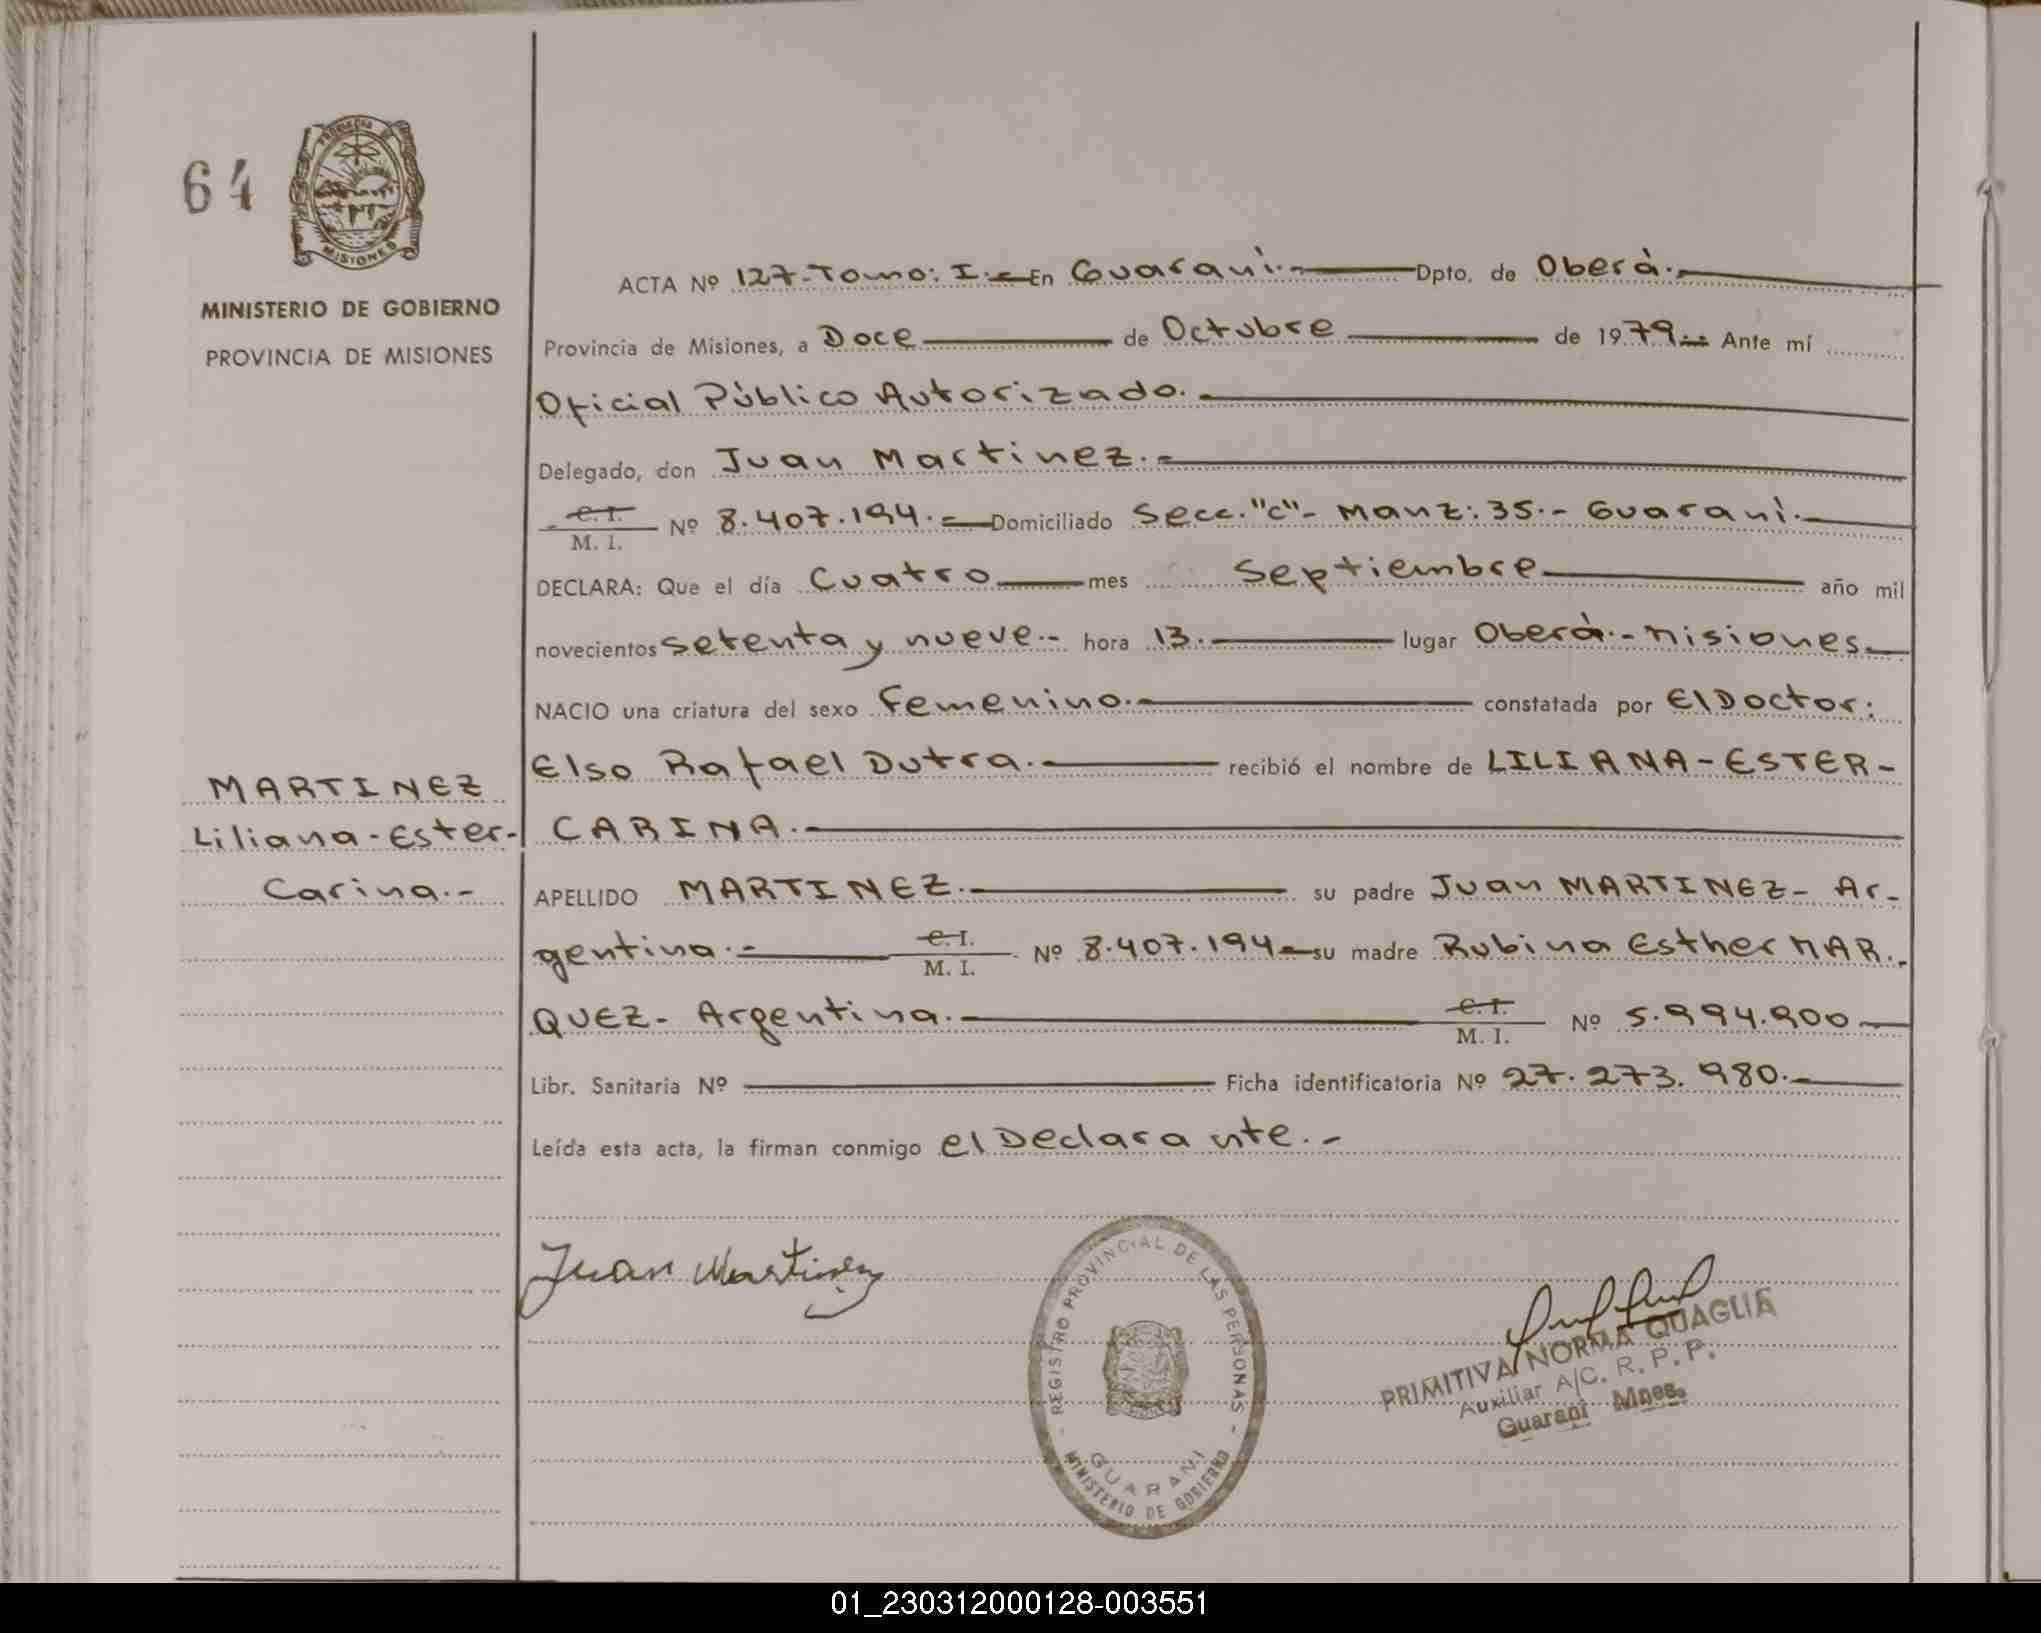 64
PROVINCIA DE
MISIONES
MINISTERIO DE GOBIERNO
PROVINCIA DE MISIONES
ACTA Nº 127-Tomo: I.- En Guaraní.- Dpto. de Oberá.-
Provincia de Misiones, a Doce de Octubre de 1979.- Ante mí
Oficial Público Autorizado.-
Delegado, don Juan Martinez.-
C.I.
M. I. Nº 8.407.194.- Domiciliado Secc."C"- Manz: 35.- Guaraní.-
DECLARA: Que el día Cuatro mes Septiembre año mil
novecientos setenta y nueve.- hora 13. lugar Oberá.- Misiones
NACIO una criatura del sexo Femenino.- constatada por El Doctor:
Elso Rafael Dutra.- recibió el nombre de LILIANA-ESTER-
CARINA.-
MARTINEZ
Liliana-Ester-
Carina.-
APELLIDO MARTINEZ.- su padre Juan MARTINEZ- Ar-
gentina.- C.I.
M. I. Nº 8.407.194- su madre Rubina Esther MAR.-
QUEZ- Argentina.- C.I.
M. I. Nº 5.994.900
Libr. Sanitaria Nº Ficha identificatoria Nº 27.273.980.-
Leída esta acta, la firman conmigo el Declarante.-
Juan Martinez
REGISTRO PROVINCIAL DE LAS PERSONAS
GUARANI
MINISTERIO DE GOBIERNO
PRIMITIVA NORMA QUAGLIA
Auxiliar A/C. R. P. P.
Guaraní Mnes.
01_230312000128-003551